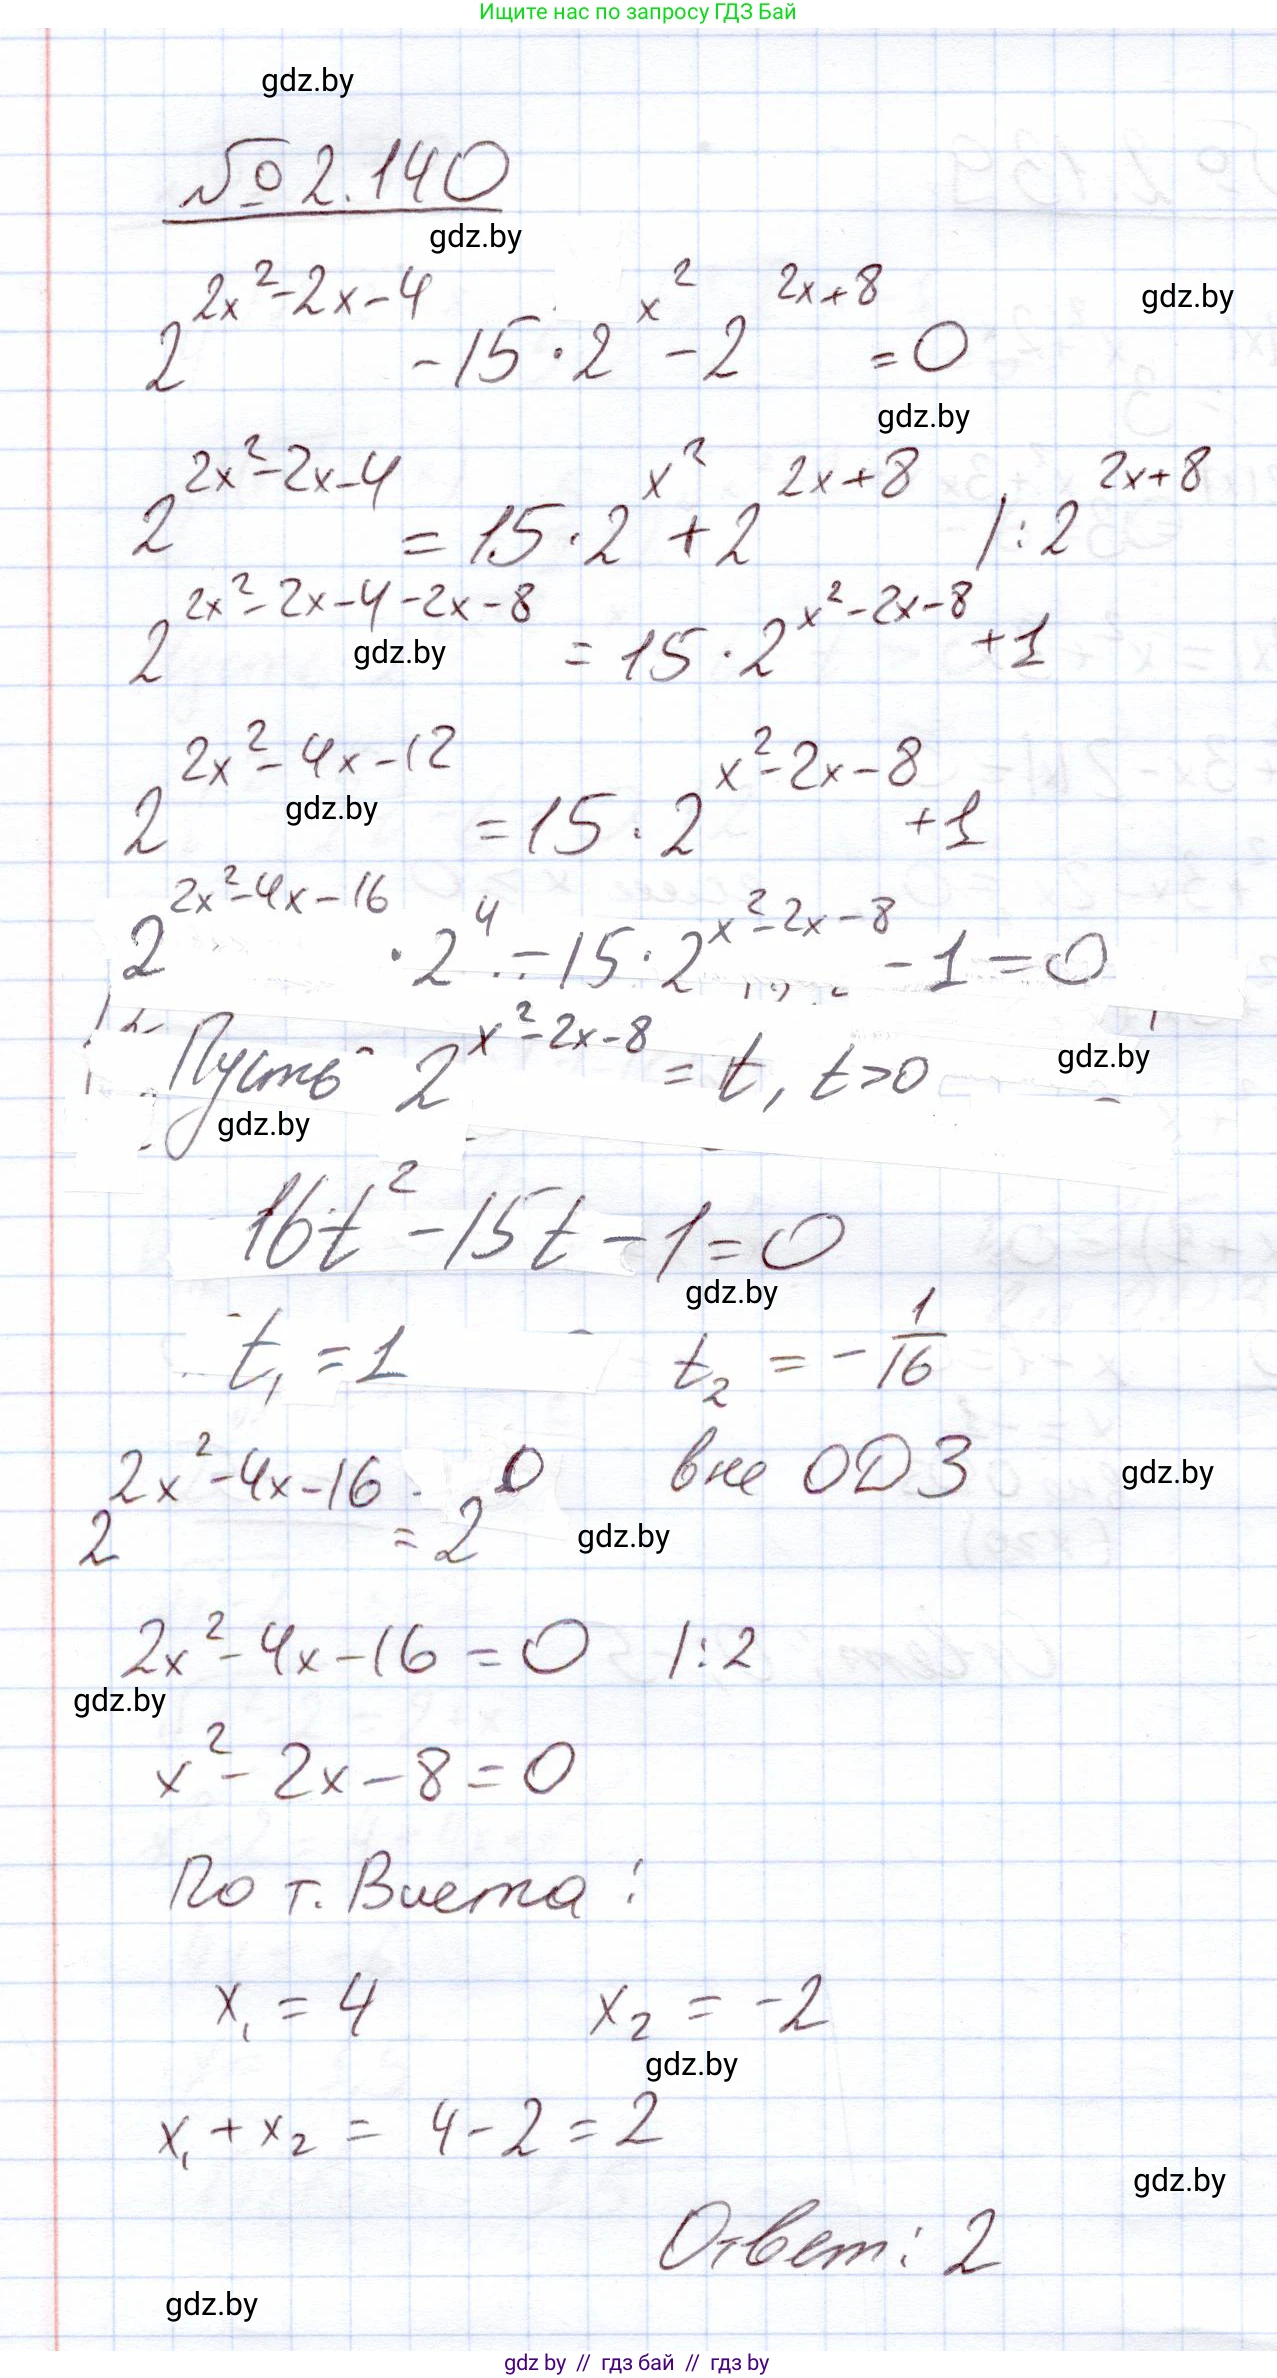 Ищите нас по запросу ГДЗ Бай
gdz.by
№ 2.140
gdz.by
2^(2x²-2x-4) - 15·2^(x²) - 2^(2x+8) = 0
gdz.by
gdz.by
2^(2x²-2x-4) = 15·2^(x²) + 2^(2x+8) /:2^(2x+8)
2^(2x²-2x-4-2x-8) = 15·2^(x²-2x-8) + 1
gdz.by
2^(2x²-4x-12) = 15·2^(x²-2x-8) + 1
gdz.by
2^(2x²-4x-16)·2⁴ - 15·2^(x²-2x-8) - 1 = 0
Пусть 2^(x²-2x-8) = t, t>0
gdz.by
gdz.by
16t² - 15t - 1 = 0
gdz.by
t₁ = 1 t₂ = -1/16
2^(2x²-4x-16) = 2⁰ вне ОДЗ
gdz.by
gdz.by
2x² - 4x - 16 = 0 /:2
gdz.by
x² - 2x - 8 = 0
По т. Виета:
x₁ = 4 x₂ = -2
gdz.by
x₁ + x₂ = 4 - 2 = 2
gdz.by
Ответ: 2
gdz.by
gdz by // гдз бай // гдз by